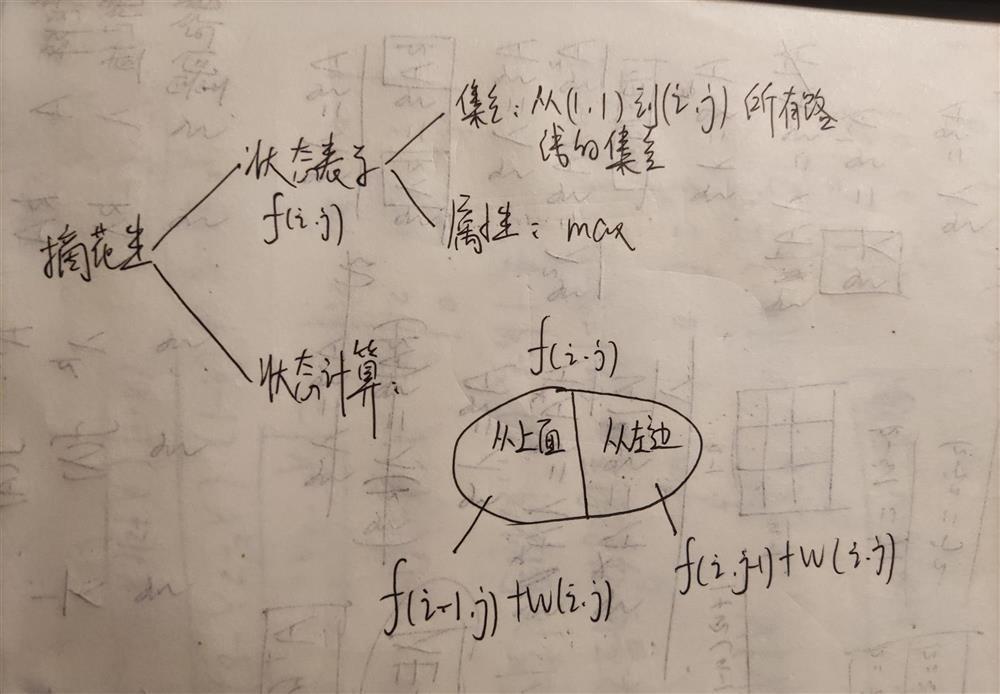 集合：从(1,1)到(i,j)所有路
线的集合
状态表示
f(i,j)
属性：max
摘花生
状态计算：
f(i,j)
从上面 从左边
f(i-1,j)+w(i,j)
f(i,j-1)+w(i,j)